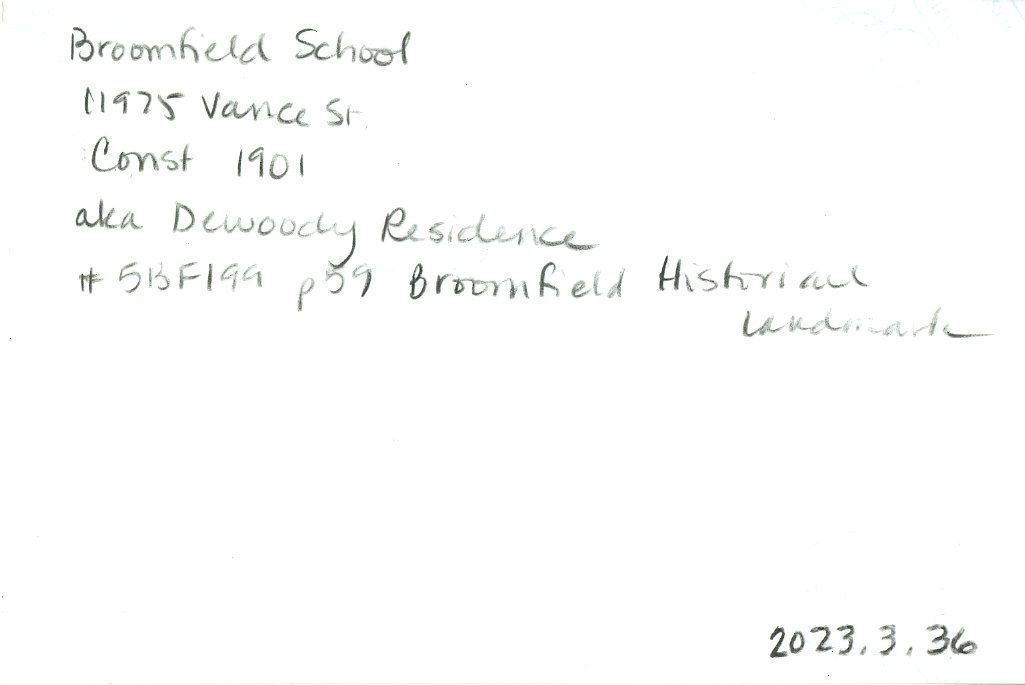 Broomfield School
11975 Vance St.
Const 1901
aka Dewoody Residence
# 5BF199 p59 Broomfield Historical
Landmark
2023.3.36